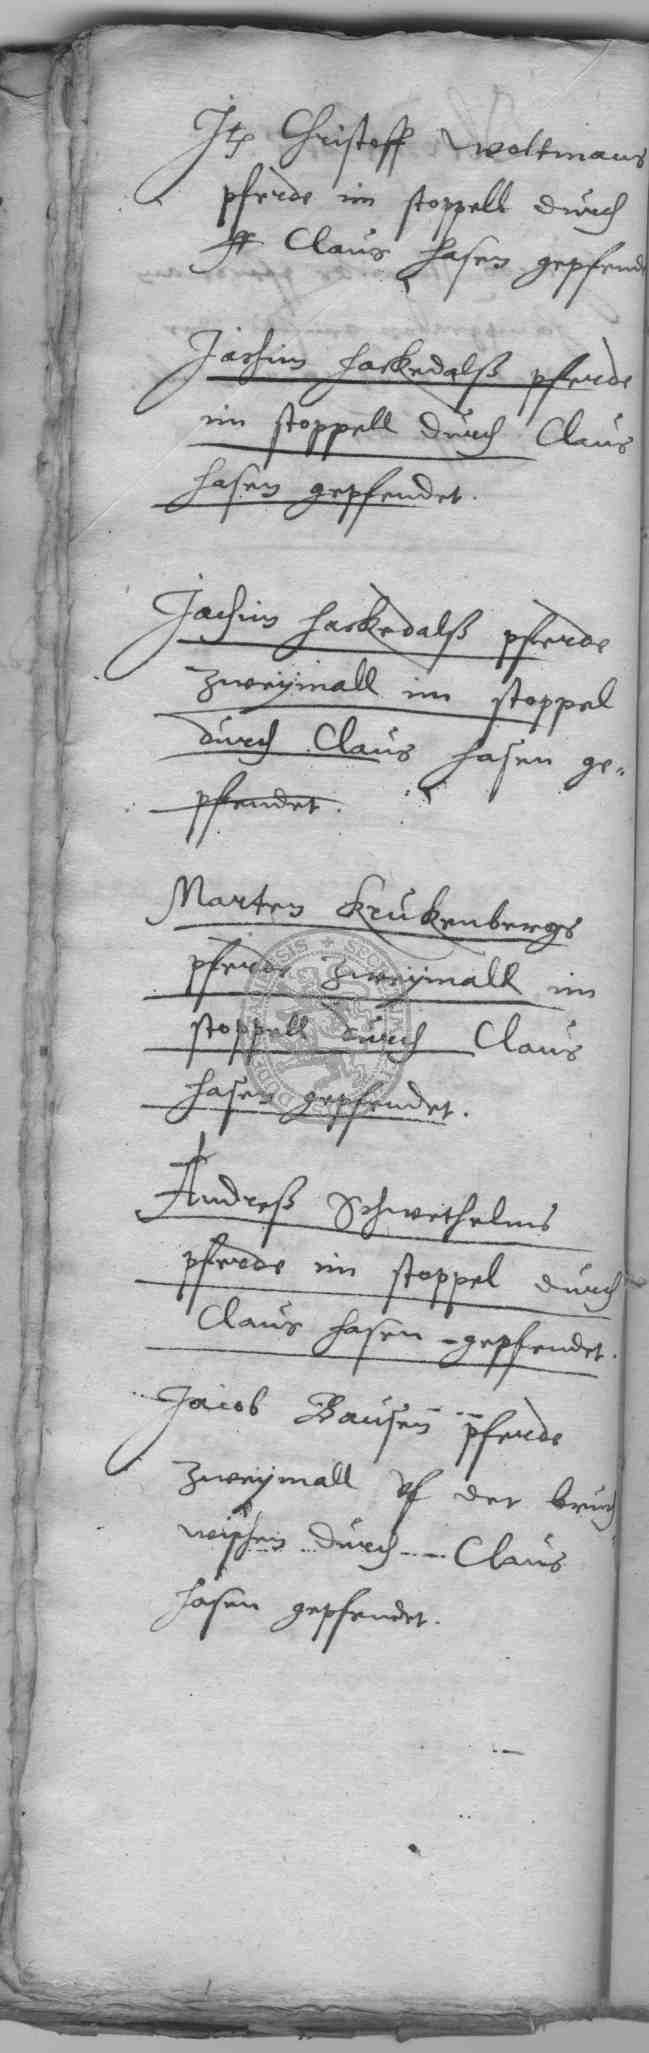 Jtz Christoff Woltmans
pferde im stoppell durch
Claus hasen gepfend
Jachim haskedalß pferde
im stoppell durch Claus
hasen gepfendet.
Jachim haskedalß pferde
zweymall im stoppel
durch Claus hasen ge-
pfendet.
Marten Krukenbergs
pferde zweymall im
stoppell durch Claus
hasen gepfendet.
Andreß Schwethelms
pferde im stoppel durch
Claus hasen gepfendet.
Jacob Bausen pferde
zweymall vf der bruch
wischen durch Claus
hasen gepfendet.